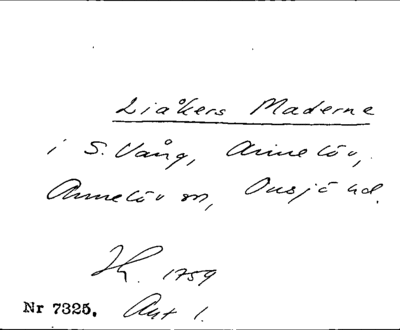 Liåkers Maderne
i S. Vång, Annelöv,
Annelöv sn, Onsjö hd.
Hh. 1759
Nr 7325. Akt 1.